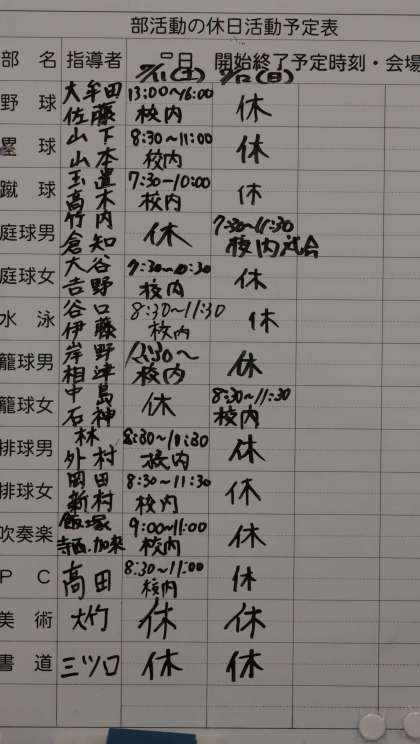 部活動の休日活動予定表
部 名 指導者 月日 開始終了予定時刻・会場
7/11(土) 7/12(日)
野 球 大牟田 佐藤 13:00〜16:00 校内 休
塁 球 山下 山本 8:30〜11:00 校内 休
蹴 球 高木 7:30〜10:00 校内 休
庭球男 竹内 倉知 休 7:30〜11:30 校内試合
庭球女 大谷 吉野 7:30〜10:30 校内 休
水 泳 谷口 伊藤 8:30〜11:30 校内 休
籠球男 岸野 相津 校内 休
籠球女 中島 石神 休 8:30〜11:30 校内
排球男 林 外村 8:30〜10:30 校内 休
排球女 岡田 新村 8:30〜11:30 校内 休
吹奏楽 飯塚 寺西.加来 9:00〜11:00 校内 休
P C 高田 8:30〜11:00 校内 休
美 術 大竹 休 休
書 道 三ツ口 休 休